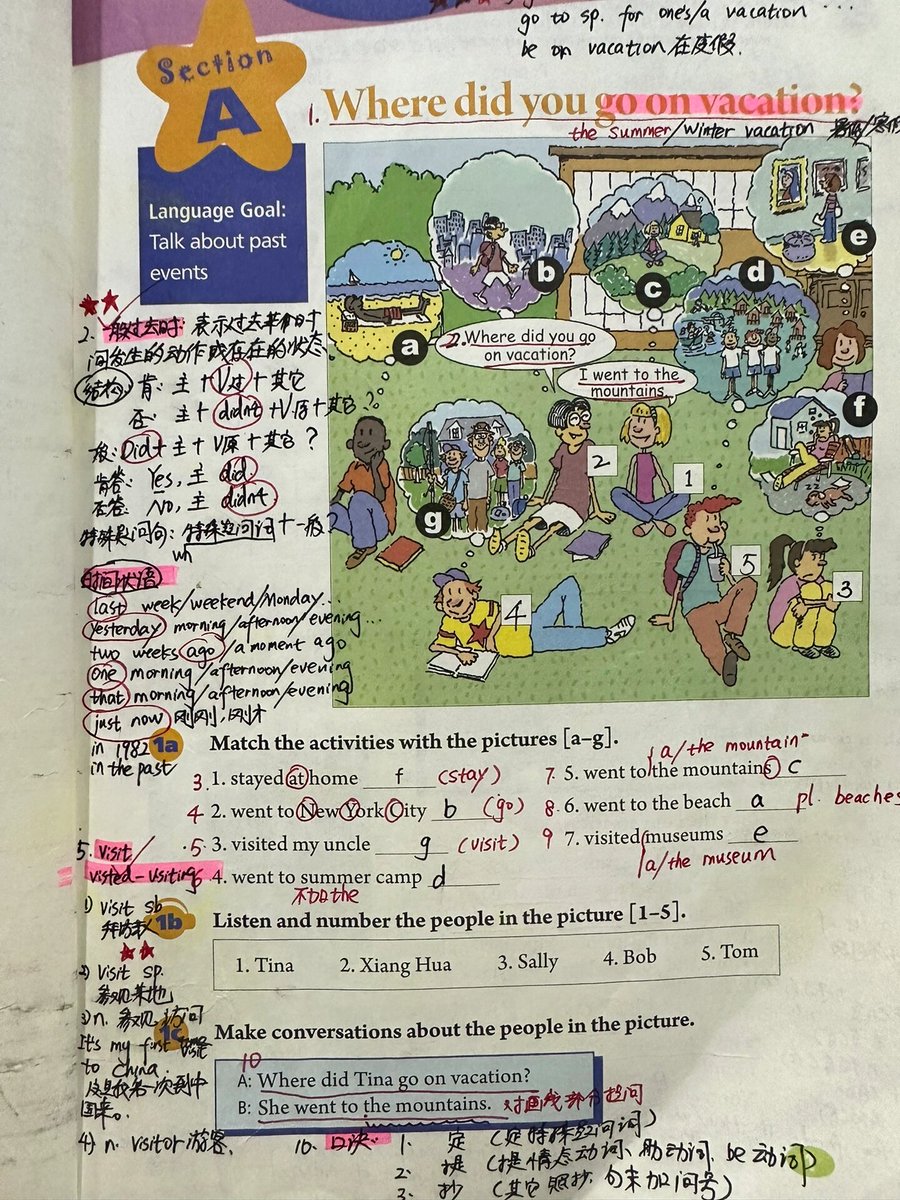 go to sp. for one's/a vacation ...
be on vacation 在度假.
Section
A
1. Where did you go on vacation?
the summer/winter vacation 暑假/寒假
Language Goal:
Talk about past
events
a
b
c
d
e
f
g
2. Where did you go
on vacation?
I went to the
mountains.
2
1
5
4
3
2. 一般过去时: 表示过去某个时
间发生的动作或存在的状态
结构: 肯: 主 + V过 + 其它
否: 主 + didn't + V原 + 其它
般: Did + 主 + V原 + 其它 ?
肯答: Yes, 主 did
否答: No, 主 didn't
特殊疑问句: 特殊疑问词 + 一般
wh
时间状语
last week/weekend/Monday...
yesterday morning/afternoon/evening...
two weeks ago/a moment ago
one morning/afternoon/evening
that morning/afternoon/evening
just now 刚刚, 刚才
in 1982
in the past
1a Match the activities with the pictures [a–g].
a/the mountain
3. 1. stayed at home f (stay)
7. 5. went to the mountains c
4 2. went to New York City b (go)
8. 6. went to the beach a pl. beaches
5 3. visited my uncle g (visit)
9 7. visited museums e
a/the museum
6 4. went to summer camp d
不加the
5. visit/
visted–visiting
1) visit sb
拜访某人
2) visit sp.
参观某地
3) n. 参观, 访问
It's my first visit
to China.
这是我第一次到中
国来。
4) n. visitor 游客.
1b Listen and number the people in the picture [1–5].
1. Tina 2. Xiang Hua 3. Sally 4. Bob 5. Tom
1c Make conversations about the people in the picture.
10
A: Where did Tina go on vacation?
B: She went to the mountains. 对画线部分提问
10. 口诀: 1. 定 (定特殊疑问词)
2. 提 (提情态动词、助动词、be动词)
3. 抄 (其它照抄, 句末加问号)